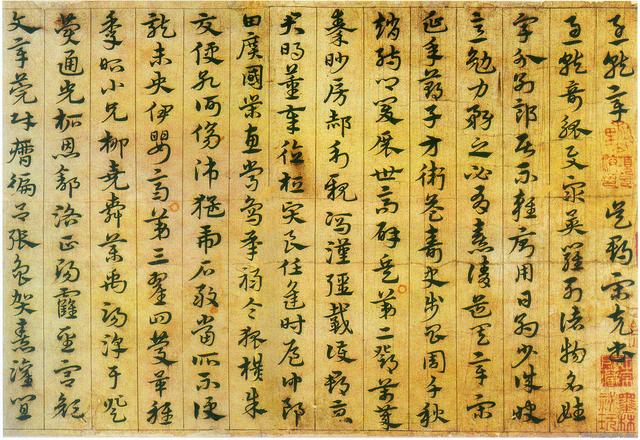 急就章 吳郡宋克書
急就奇觚與衆異羅列諸物名姓
字分別部居不雜廁用日約少誠快
意勉力務之必有憙請道其章宋
延年鄭子方衛益壽史步昌周千秋
趙孺卿爰展世高辟兵第二鄧萬歲
秦眇房郝利親馮漢彊戴護郡景
君明董奉德桓賢良任逢時侯仲郎
由廣國榮惠常烏承祿令狐橫朱
交便孔何傷師猛虎石敢當所不便
龍未央伊嬰齊第三翟回慶畢稚
季昭小兄柳堯舜藥禹湯淳于登
費通光柘恩舒路正陽霍聖宮顏
文章莞財歷編呂張魯賀憙灌宜